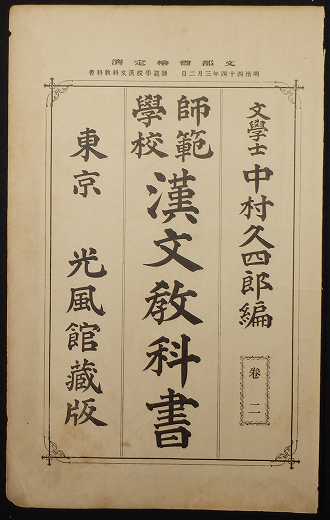 文部省檢定濟
明治四十四年三月二日 師範學校漢文科敎科書
文學士 中村久四郎編
卷二
師範學校 漢文敎科書
東京 光風館藏版